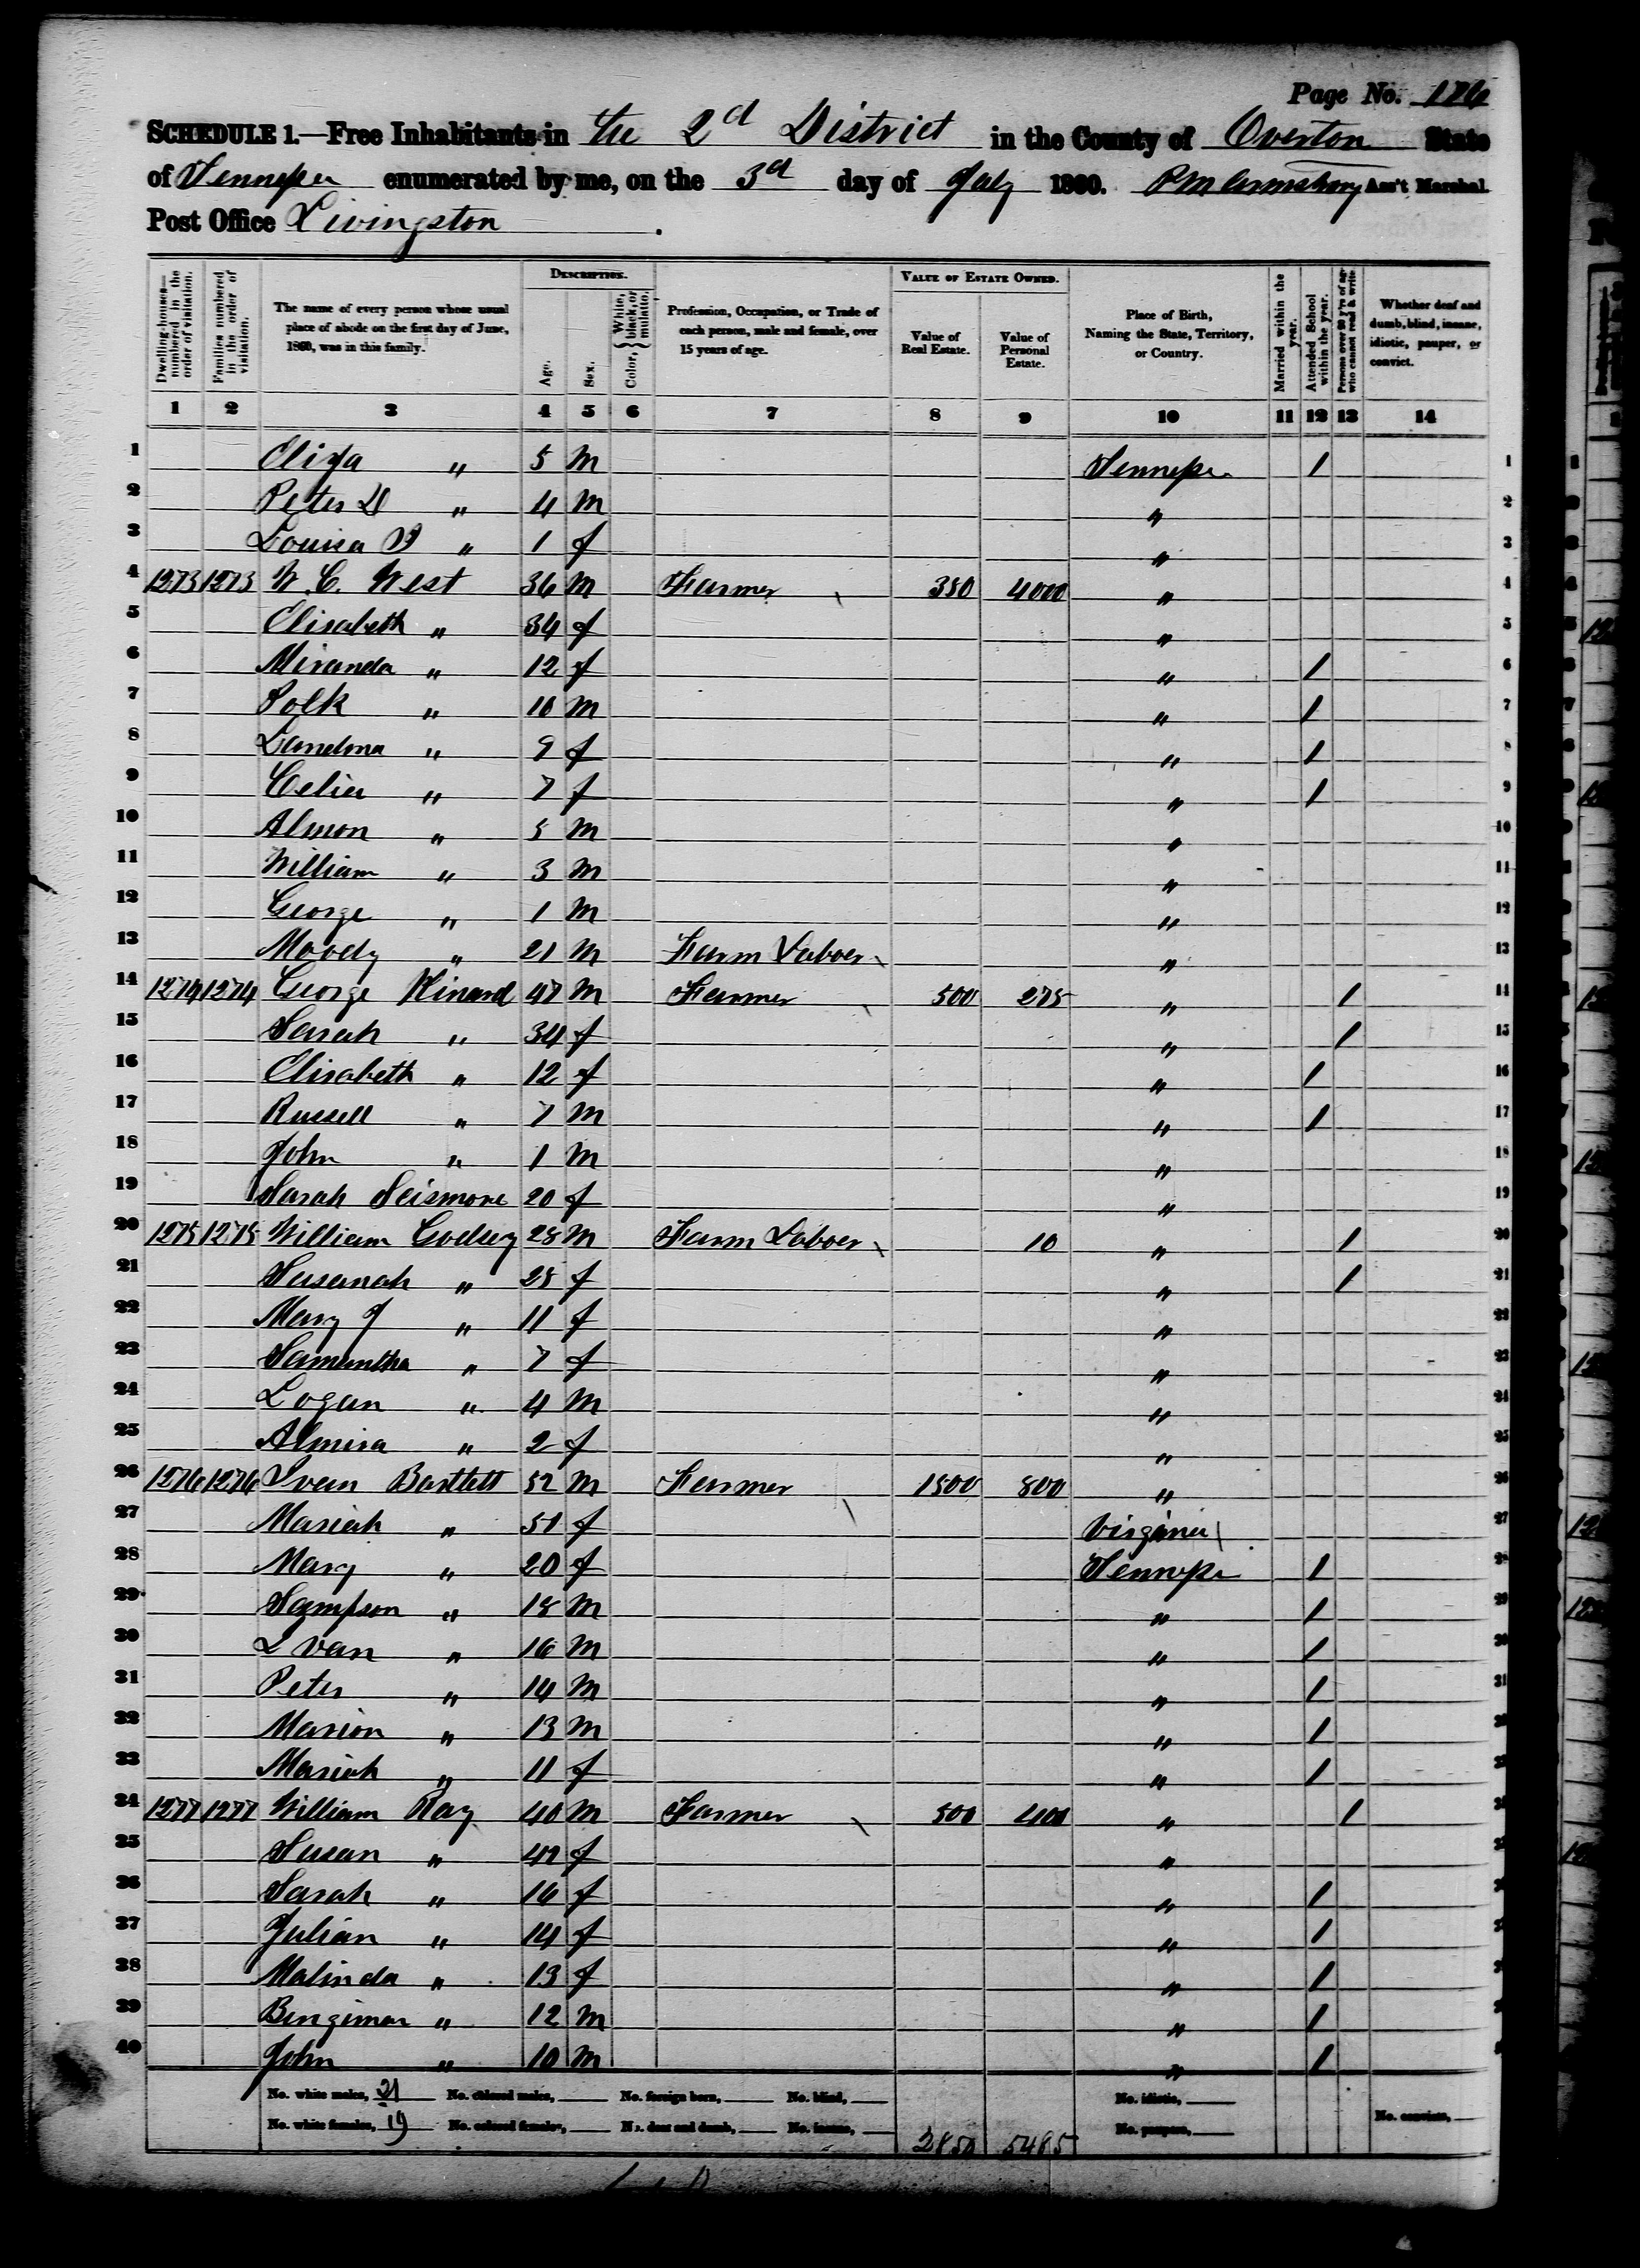 Page No. 176
SCHEDULE 1.—Free Inhabitants in the 2d District in the County of Overton State
of Tennessee enumerated by me, on the 3d day of July 1860. P M Armstrong Ass't Marshal.
Post Office Livingston.
Dwelling-houses—numbered in the order of visitation. Families numbered in the order of visitation. The name of every person whose usual place of abode on the first day of June, 1860, was in this family. DESCRIPTION. Age. Sex. Color, White, black, or mulatto. Profession, Occupation, or Trade of each person, male and female, over 15 years of age. VALUE OF ESTATE OWNED. Value of Real Estate. Value of Personal Estate. Place of Birth, Naming the State, Territory, or Country. Married within the year. Attended School within the year. Persons over 20 y'rs of age who cannot read & write. Whether deaf and dumb, blind, insane, idiotic, pauper, or convict.
1 2 3 4 5 6 7 8 9 10 11 12 13 14
1 " 5 M Tennessee / 1
2 Peter D " 4 M " 2
3 Louisa " 1 f " 3
4 1273 1273 W. C. West 36 M Farmer 350 4000 " 4
5 Elisabeth " 34 f " 5
6 Miranda " 12 f " / 6
7 Polk " 10 M " / 7
8 " 9 f " / 8
9 Celia " 7 f " / 9
10 Almon " 5 M " 10
11 William " 3 M " 11
12 George " 1 M " 12
13 Moody " 21 M Farm Laboer " 13
14 1274 1274 George Hinard 47 M Farmer 500 275 " / 14
15 Sarah " 34 f " / 15
16 Elisabeth " 12 f " / 16
17 Russell " 7 M " / 17
18 John " 1 M " 18
19 Sarah Seismore 20 f " 19
20 1275 1275 William Godsey 28 M Farm Laboer 10 " / 20
21 Susanah " 28 f " / 21
22 Mary J " 11 f " 22
23 Samantha " 7 f " 23
24 Logan " 4 M " 24
25 Almira " 2 f " 25
26 1276 1276 Ivan Bartlett 52 M Farmer 1500 800 " 26
27 Mariah " 51 f Virginia 27
28 Mary " 20 f Tennessee / 28
29 Sampson " 18 M " / 29
30 Ivan " 16 M " / 30
31 Peter " 14 M " / 31
32 Marion " 13 M " /
33 Mariah " 11 f " /
34 1277 1277 William Ray 40 M Farmer 500 400 " /
35 Susan " 42 f "
36 Sarah " 16 f " /
37 Julian " 14 f " /
38 Malinda " 13 f " /
39 Bengiman " 12 M " /
40 John " 10 M " /
No. white males, 21 No. colored males, No. foreign born, No. blind, No. idiotic,
No. white females, 19 No. colored females, No. deaf and dumb, No. insane, 2850 5485 No. paupers, No. convicts,